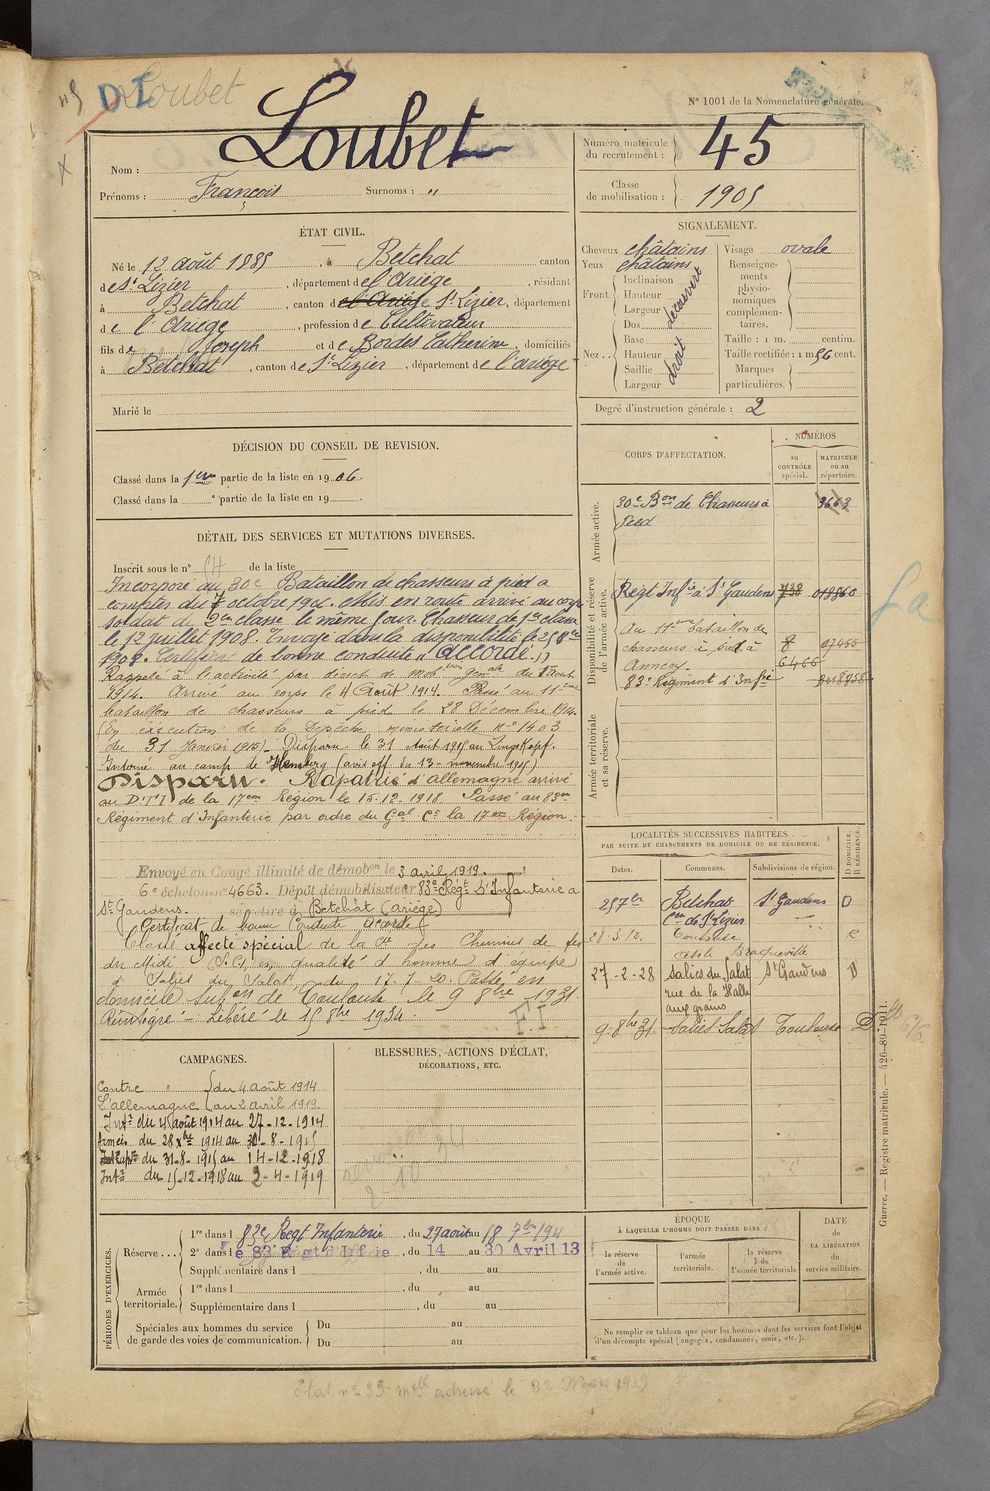 Loubet
D I
N° 1001 de la Nomenclature générale.
Nom : Loubet
Prénoms : François Surnoms : "
Numéro matricule du recrutement : 45
Classe de mobilisation : 1905
ÉTAT CIVIL.
Né le 12 août 1885, à Betchat canton
de St Lizier, département de l'Ariège, résidant
à Betchat, canton de St Lizier, département
de l'Ariège, profession de Cultivateur
fils de Joseph et de Bordes Catherine, domiciliés
à Betchat, canton de St Lizier, département de l'ariège
Marié le
SIGNALEMENT.
Cheveux châtains
Yeux châtains
Front. Inclinaison
Hauteur
Largeur
découvert
Nez. Dos
Base
Hauteur
Saillie
Largeur
droit
Visage ovale
Renseignements physionomiques complémentaires.
Taille : 1 m. centim.
Taille rectifiée : 1 m 56 cent.
Marques particulières.
Degré d'instruction générale : 2
DÉCISION DU CONSEIL DE REVISION.
Classé dans la 1ère partie de la liste en 1906.
Classé dans la ° partie de la liste en 19
DÉTAIL DES SERVICES ET MUTATIONS DIVERSES.
Inscrit sous le n° de la liste
Incorporé au 30e Bataillon de chasseurs à pied à
compter du 7 octobre 1906. Mis en route arrivé au corps
soldat de 2e classe le même jour. Chasseur de 1re classe
le 12 juillet 1908. Envoyé dans la disponibilité le 25 7bre
1908. Certificat de bonne conduite "accordé."
Rappelé à l'activité par décret de Mobon génale du 1er août
1914. Arrivé au corps le 4 août 1914. Passé au 11ème
bataillon de chasseurs à pied le 28 Décembre 1914.
(En exécution de la Dépêche ministérielle n° 1403
du 31 janvier 1915). Disparu le 31 août 1915 au Lingekopf.
Interné au camp de (avis off. du 13 novembre 1915)
Disparu. Rapatrié d'allemagne arrivé
au D.T.I de la 17ème Région le 15-12-1918. Passé au 83ème
Régiment d'Infanterie par ordre du Gal Ct la 17ème Région.
Envoyé en Congé illimité de démobon le 3 avril 1919.
6e échelon n° 4663. Dépôt démobilisateur 83e Régt d'Infanterie à
St Gaudens. se retire à Betchat (Ariège)
Certificat de bonne Conduite Accordé
Classé affecté spécial de la Cie des Chemins de fer
du Midi en qualité d'homme d'équipe
à Salies du Salat, du 17-7-20. Passé en
domicile subon de Toulouse, le 9 8bre 1931.
Réintégré - Libéré le 15 8bre 1934.
F I
CORPS D'AFFECTATION.
NUMÉROS
AU CONTRÔLE spécial.
MATRICULE ou au répertoire.
Armée active.
30e Bon de Chasseurs à pied 3663
Disponibilité et réserve de l'armée active.
Régt Infie à St Gaudens 738 019860
Au 11ème bataillon de
chasseurs à pied à
Annecy. 6466
83e Régiment d'Infie
Armée territoriale et sa réserve.
LOCALITÉS SUCCESSIVES HABITÉES
PAR SUITE DE CHANGEMENTS DE DOMICILE OU DE RÉSIDENCE.
Dates. Communes. Subdivisions de région. D DOMICILE. R RÉSIDENCE.
Betchat St Gaudens D
Con de St Lizier
28-3-12. Toulouse R
asile Braqueville
27-2-28 Salies du Salat St Gaudens D
rue de la Halle
aux grains
9-8bre 31. Salies Salat Toulouse D
CAMPAGNES.
Contre du 4 août 1914
L'allemagne au 2 avril 1919.
Intre du 4 août 1914 au 27-12-1914
Armées du 28 Xbre 1914 au 30-8-1915
du 31-8-1915 au 14-12-1918
Intre du 15-12-1918 au 2-4-1919
BLESSURES, ACTIONS D'ÉCLAT,
DÉCORATIONS, ETC.
PÉRIODES D'EXERCICES.
Réserve... 1re dans l 83e Régt Infanterie, du 27 août au 18 7bre 191
2e dans l e 83 Régt d'Infie, du 14 au 30 Avril 13
Supplémentaire dans l , du au
Armée territoriale. 1re dans l , du au
Supplémentaire dans l , du au
Spéciales aux hommes du service de garde des voies de communication. Du au
Du au
ÉPOQUE
À LAQUELLE L'HOMME DOIT PASSER DANS :
la réserve de l'armée active.
l'armée territoriale.
la réserve de l'armée territoriale
DATE de LA LIBÉRATION du service militaire.
Ne remplir ce tableau que pour les hommes dont les services font l'objet d'un décompte spécial (engagés, condamnés, omis, etc.).
Guerre. — Registre matricule. — 426-89-1911.
État n° 35 adressé le 22 Mars 1919